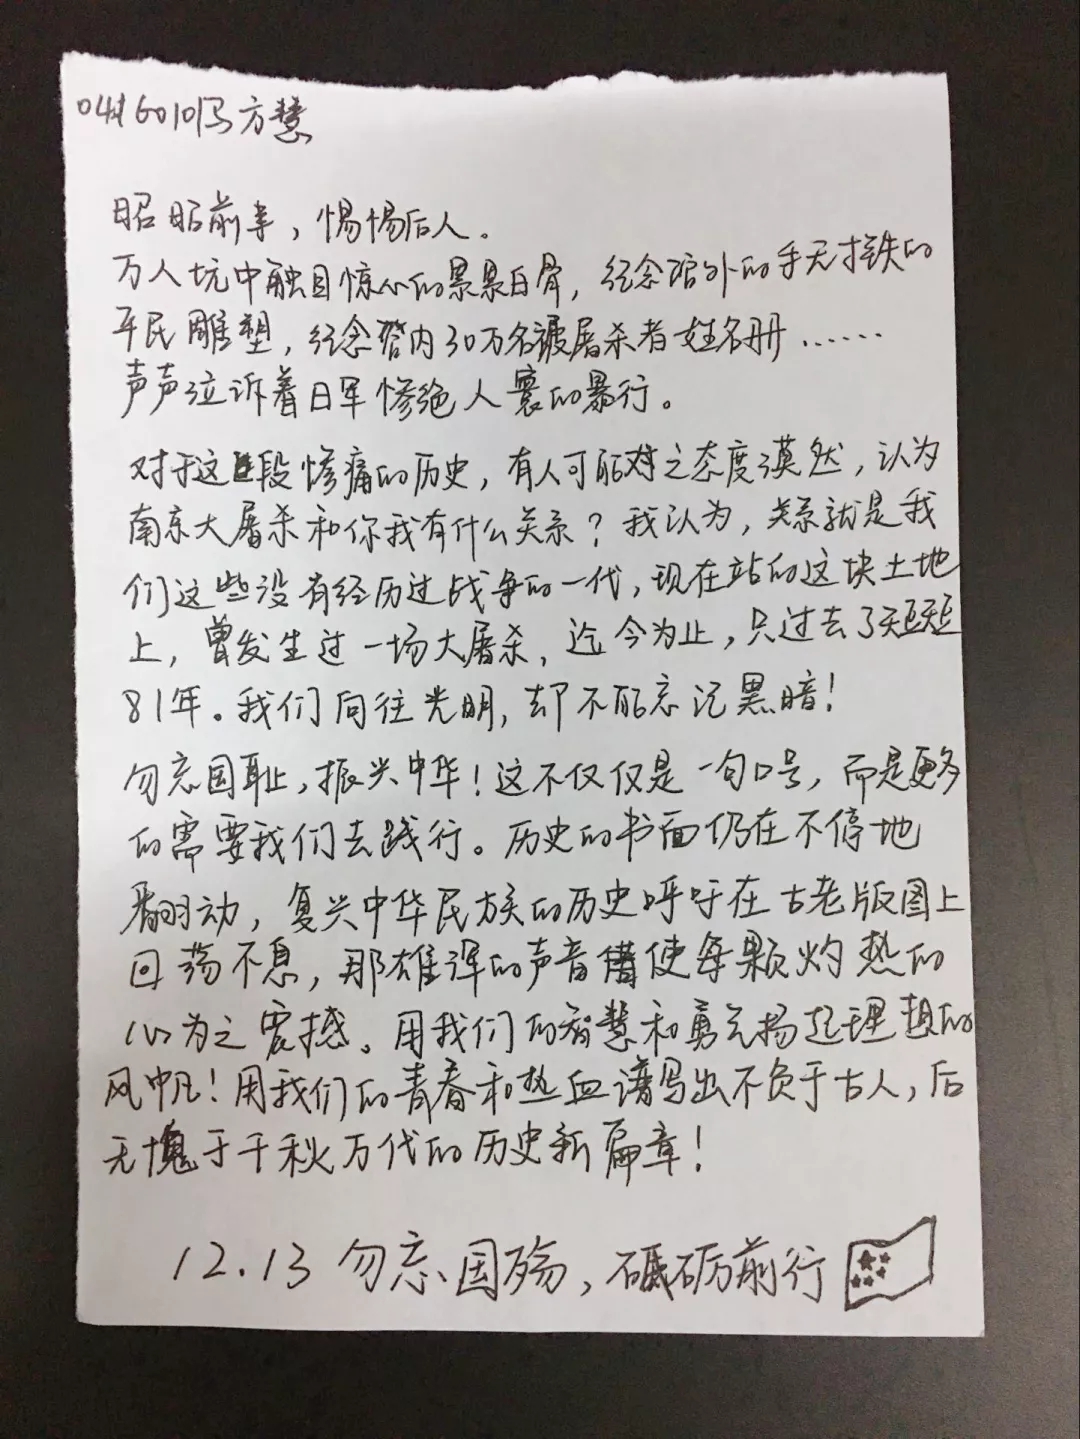 马方慧
昭昭前事，惕惕后人。
万人坑中触目惊心的累累白骨，纪念馆外的手无寸铁的
平民雕塑，纪念馆内30万名被屠杀者姓名册……
声声泣诉着日军惨绝人寰的暴行。
对于这段惨痛的历史，有人可能对之态度漠然，认为
南京大屠杀和你我有什么关系？我认为，关系就是我
们这些没有经历过战争的一代，现在站的这块土地
上，曾发生过一场大屠杀，迄今为止，只过去了短短
81年。我们向往光明，却不能忘记黑暗！
勿忘国耻，振兴中华！这不仅仅是一句口号，而是更多
的需要我们去践行。历史的书面仍在不停地
翻动，复兴中华民族的历史呼吁在古老版图上
回荡不息，那雄浑的声音使每颗灼热的
心为之震撼。用我们的智慧和勇气扬起理想的
风帆！用我们的青春和热血谱写出不负于古人，后
无愧于千秋万代的历史新篇章！
12.13 勿忘国殇，砥砺前行